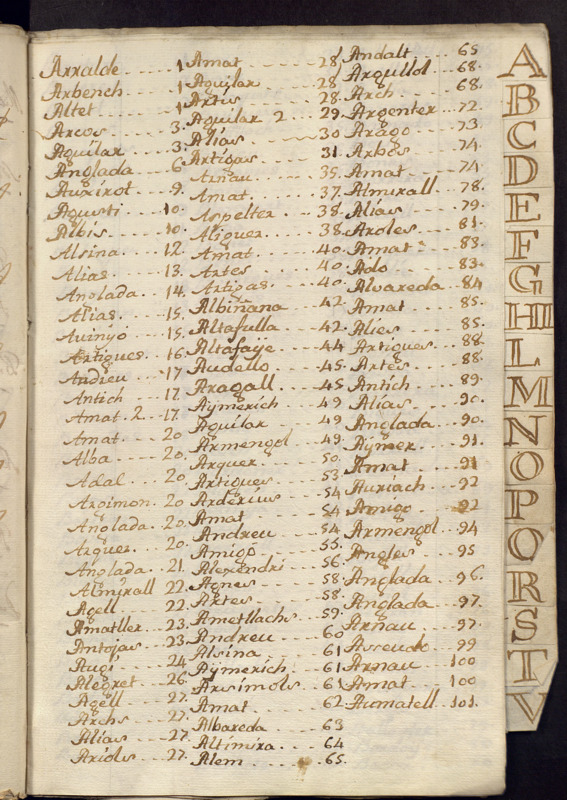 Arralde - - - - 1
Arbench - - - 1
Altet - - - - 1
Arcos - - - - 3.
Aguilar - - - 3.
Anglada - - - 6.
Auxirot - - - 9.
Agusti - - - 10.
Albis - - - - 10.
Alsina - - - 12.
Alias - - - - 13.
Anglada - - 14.
Alias - - - - 15.
Avinyo - - - 15.
Artigues - - 16
Andreu - - - 17
Antich - - - 17.
Amat. 2. - - 17.
Amat - - - - 20
Alba - - - - 20.
Adal - - - - 20.
Argimon - - 20
Anglada - - 20.
Arquer - - - 20.
Anglada - - 21.
Almirall - - 22.
Agell - - - - 22.
Amatller - - 23.
Antojas - - 23.
Augi - - - - 24
Alegret - - 26.
Agell - - - - 27.
Archs - - - 27.
Alias - - - - 27.
Ariols - - - 27.
Amat - - - - 28
Aguilar - - - 28
Artis - - - - 28.
Aguilar 2 - - 29.
Alias - - - - 30
Artigas - - - 31.
Arnau - - - - 35.
Amat - - - - 37.
Aspelter - - 38.
Aliguer - - - 38.
Amat - - - - 40.
Artes - - - - 40.
Artigas - - - 40.
Albiñana - - 42.
Altafulla - - 42.
Altafaye - - 44
Audello - - - 45.
Aragall - - - 45
Aÿmerich - - 49
Aguilar - - - 49
Armengol - - 49.
Arquer - - - 50.
Artigues - - 53
Arderius - - 54
Amat - - - - 54
Andreu - - - 54
Amigo - - - 55.
Alexendri - - 56.
Agnes - - - - 58
Artes - - - - 58.
Ametllachs - - 59.
Andreu - - - 60
Alsina - - - 61
Aÿmerich - - 61
Arsimols - - 61
Amat - - - - 62
Albareda - - 63
Altimira - - 64
Alem - - - - 65.
Andalt - - - 65
Argullol - - 68.
Arch - - - - 68.
Argenter - - 72.
Arago - - - - 73
Arbos - - - - 74.
Amat - - - - 74
Almirall - - 78.
Alias - - - - 79.
Aroles - - - 81.
Amat - - - - 83.
Ado - - - - - 83.
Alvareda - - 84
Amat - - - - 85.
Alies - - - - 85.
Artigues - - 88.
Artes - - - - 88.
Antich - - - 89.
Alias - - - - 90.
Anglada - - 90.
Aÿmer - - - 91.
Amat - - - - 91
Auriach - - 92
Amigo - - - 92
Armengol - - 94
Angles - - - 95
Anglada - - 96.
Anglada - - 97.
Arnau - - - 97.
Asseudo - - 99
Arnau - - - 100
Amat - - - - 100
Aumatell - - 101.
A
B
C
D
E
F
G
HIJ
L
M
N
O
P
Q
R
S
T
V